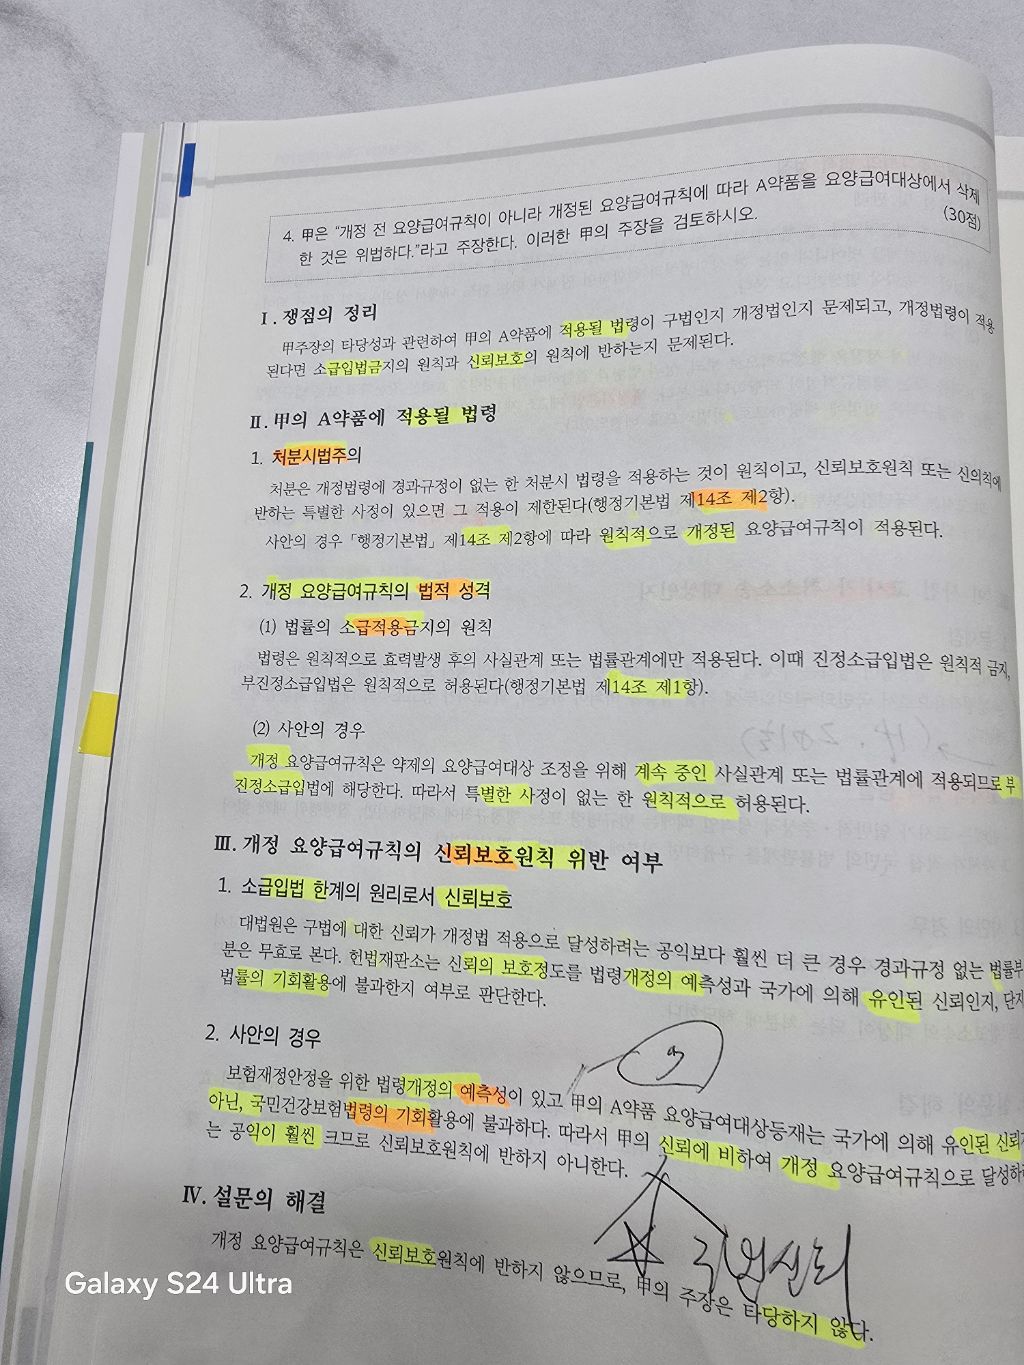 4. 甲은 “개정 전 요양급여규칙이 아니라 개정된 요양급여규칙에 따라 A약품을 요양급여대상에서 삭제
한 것은 위법하다.”라고 주장한다. 이러한 甲의 주장을 검토하시오. (30점)
Ⅰ. 쟁점의 정리
甲주장의 타당성과 관련하여 甲의 A약품에 적용될 법령이 구법인지 개정법인지 문제되고, 개정법령이 적용
된다면 소급입법금지의 원칙과 신뢰보호의 원칙에 반하는지 문제된다.
Ⅱ. 甲의 A약품에 적용될 법령
1. 처분시법주의
처분은 개정법령에 경과규정이 없는 한 처분시 법령을 적용하는 것이 원칙이고, 신뢰보호원칙 또는 신의칙에
반하는 특별한 사정이 있으면 그 적용이 제한된다(행정기본법 제14조 제2항).
사안의 경우 「행정기본법」 제14조 제2항에 따라 원칙적으로 개정된 요양급여규칙이 적용된다.
2. 개정 요양급여규칙의 법적 성격
(1) 법률의 소급적용금지의 원칙
법령은 원칙적으로 효력발생 후의 사실관계 또는 법률관계에만 적용된다. 이때 진정소급입법은 원칙적 금지,
부진정소급입법은 원칙적으로 허용된다(행정기본법 제14조 제1항).
(2) 사안의 경우
개정 요양급여규칙은 약제의 요양급여대상 조정을 위해 계속 중인 사실관계 또는 법률관계에 적용되므로 부
진정소급입법에 해당한다. 따라서 특별한 사정이 없는 한 원칙적으로 허용된다.
Ⅲ. 개정 요양급여규칙의 신뢰보호원칙 위반 여부
1. 소급입법 한계의 원리로서 신뢰보호
대법원은 구법에 대한 신뢰가 개정법 적용으로 달성하려는 공익보다 훨씬 더 큰 경우 경과규정 없는 법률부
분은 무효로 본다. 헌법재판소는 신뢰의 보호정도를 법령개정의 예측성과 국가에 의해 유인된 신뢰인지, 단지
법률의 기회활용에 불과한지 여부로 판단한다.
2. 사안의 경우
보험재정안정을 위한 법령개정의 예측성이 있고 甲의 A약품 요양급여대상등재는 국가에 의해 유인된 신뢰가
아닌, 국민건강보험법령의 기회활용에 불과하다. 따라서 甲의 신뢰에 비하여 개정 요양급여규칙으로 달성하
는 공익이 훨씬 크므로 신뢰보호원칙에 반하지 아니한다.
Ⅳ. 설문의 해결
개정 요양급여규칙은 신뢰보호원칙에 반하지 않으므로, 甲의 주장은 타당하지 않다.
Galaxy S24 Ultra